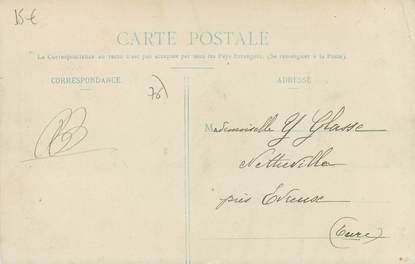 15€
CARTE POSTALE
La Correspondance au recto n'est pas acceptée par tous les Pays Étrangers. (Se renseigner à la Poste).
CORRESPONDANCE
ADRESSE
76)
Mademoiselle Y Glasse
près
(Eure)